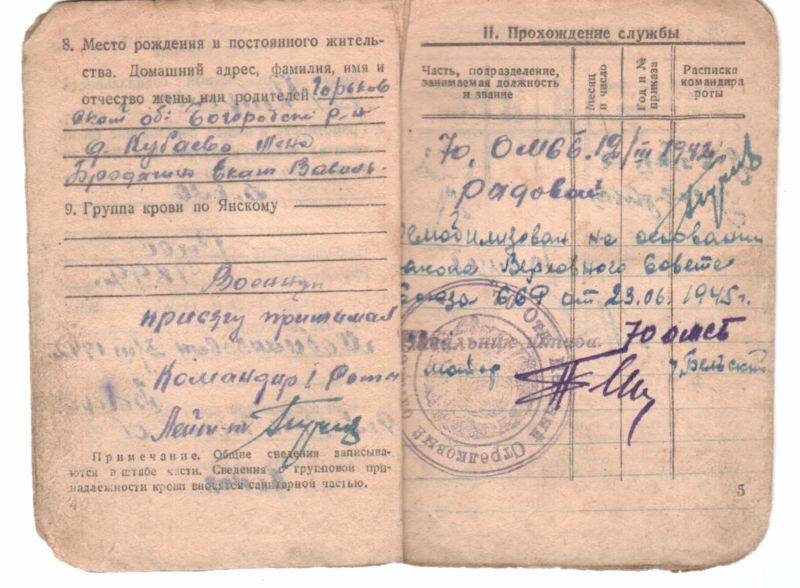 8. Место рождения и постоянного житель-
ства. Домашний адрес, фамилия, имя и
отчество жены или родителей Горьков
ской об: Богородски р-н
д. Кубаево жена
Екат Вавиль-
9. Группа крови по Янскому
Военную
присягу принимал
Командир 1 Роты
Лейт-т
Примечание. Общие сведения записыва-
ются в штабе части. Сведения о групповой при-
надлежности крови вносятся санитарной частью.
4
II. Прохождение службы
Часть, подразделение, занимаемая должность и звание
Месяц и число
Год и № приказа
Расписка командира роты
70, ОМСБ. 19/III 1942
рядовой
Демобилизован на основании
закона Верховного Совета
Союза ССР от 23.06.1945г.
Начальник штаба. 70 омсб
майор /Бельский
Стрелковый
5